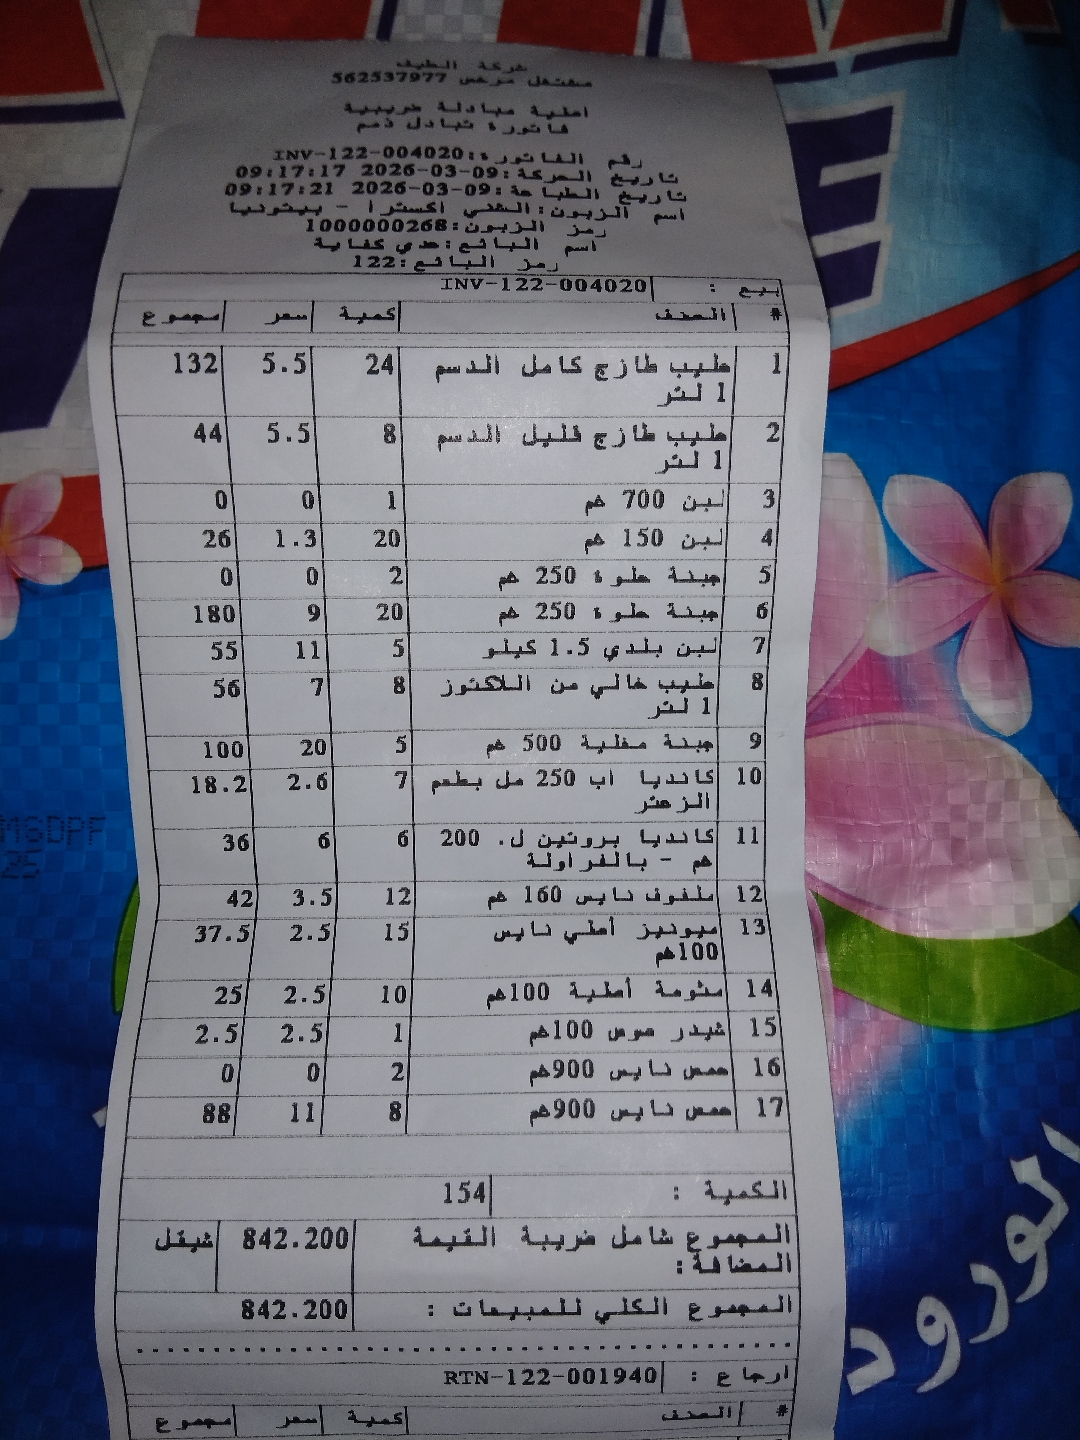 شركة الطيف
مشتغل مرخص 562537977
اصلية مبادلة ضريبية
فاتورة تبادل ذمم
رقم الفاتورة: INV-122-004020
تاريخ الحركة: 09-03-2026 09:17:17
تاريخ الطباعة: 09-03-2026 09:17:21
اسم الزبون: الشني اكسترا - بيتونيا
رمز الزبون: 1000000268
اسم البائع: هدي كفاية
رمز البائع: 122
بيع : INV-122-004020
# الصنف كمية سعر مجموع
1 حليب طازج كامل الدسم 24 5.5 132
1 لتر
2 حليب طازج قليل الدسم 8 5.5 44
1 لتر
3 لبن 700 غم 1 0 0
4 لبن 150 غم 20 1.3 26
5 جبنة حلوة 250 غم 2 0 0
6 جبنة حلوة 250 غم 20 9 180
7 لبن بلدي 1.5 كيلو 5 11 55
8 حليب خالي من اللاكتوز 8 7 56
1 لتر
9 جبنة مغلية 500 غم 5 20 100
10 كانديا اب 250 مل بطعم 7 2.6 18.2
الزعتر
11 كانديا بروتين ل. 200 6 6 36
غم - بالفراولة
12 ملفوف نايس 160 غم 12 3.5 42
13 ميونيز أصلي نايس 15 2.5 37.5
100غم
14 مثومة أصلية 100غم 10 2.5 25
15 شيدر صوص 100غم 1 2.5 2.5
16 حمص نايس 900غم 2 0 0
17 حمص نايس 900غم 8 11 88
الكمية : 154
المجموع شامل ضريبة القيمة 842.200 شيقل
المضافة:
المجموع الكلي للمبيعات : 842.200
ارجاع : RTN-122-001940
# الصنف كمية سعر مجموع
الورود
MGDPF
25